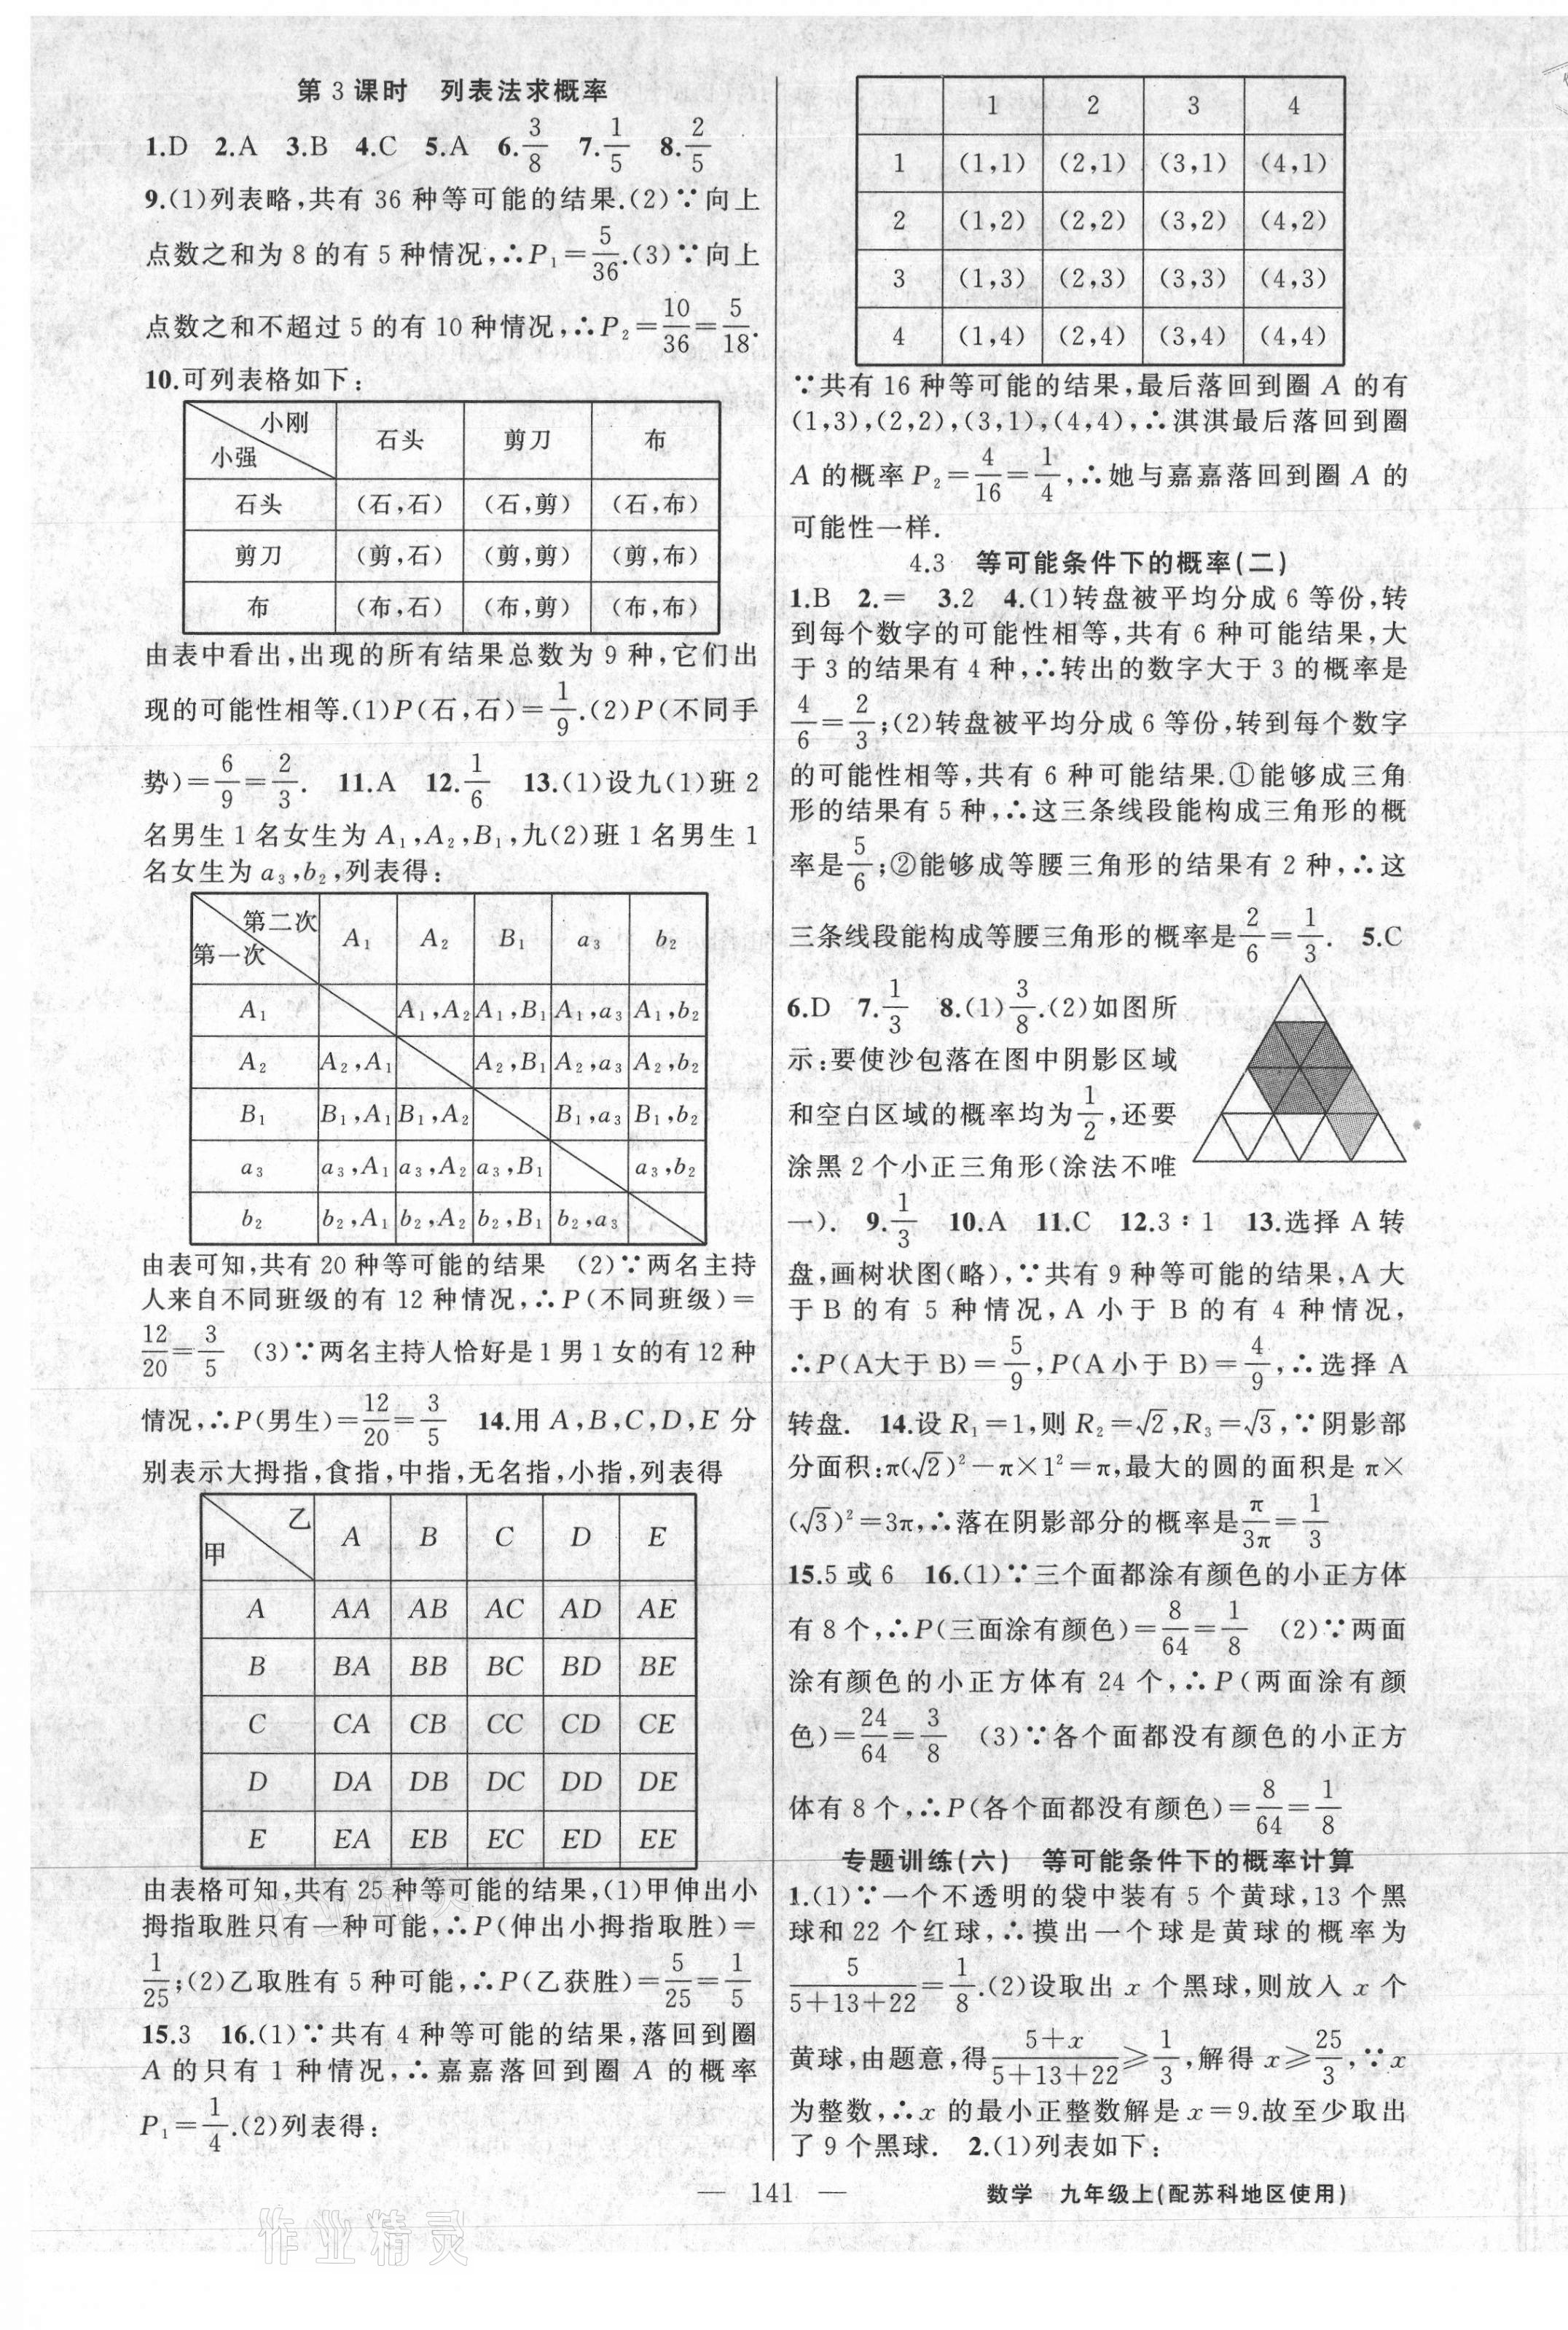 第 3 课时　列表法求概率
1.D　2.A　3.B　4.C　5.A　6.3/8　7.1/5　8.2/5
9.(1)列表略,共有 36 种等可能的结果.(2)∵向上
点数之和为 8 的有 5 种情况,∴P₁=5/36.(3)∵向上
点数之和不超过 5 的有 10 种情况,∴P₂=10/36=5/18.
10.可列表格如下:
小强 \ 小刚　石头　剪刀　布
石头　(石,石)　(石,剪)　(石,布)
剪刀　(剪,石)　(剪,剪)　(剪,布)
布　(布,石)　(布,剪)　(布,布)
由表中看出,出现的所有结果总数为 9 种,它们出
现的可能性相等.(1)P(石,石)=1/9.(2)P(不同手
势)=6/9=2/3.　11.A　12.1/6　13.(1)设九(1)班 2
名男生 1 名女生为 A₁,A₂,B₁,九(2)班 1 名男生 1
名女生为 a₃,b₂,列表得:
第一次 \ 第二次　A₁　A₂　B₁　a₃　b₂
A₁　　A₁,A₂　A₁,B₁　A₁,a₃　A₁,b₂
A₂　A₂,A₁　　A₂,B₁　A₂,a₃　A₂,b₂
B₁　B₁,A₁　B₁,A₂　　B₁,a₃　B₁,b₂
a₃　a₃,A₁　a₃,A₂　a₃,B₁　　a₃,b₂
b₂　b₂,A₁　b₂,A₂　b₂,B₁　b₂,a₃
由表可知,共有 20 种等可能的结果　(2)∵两名主持
人来自不同班级的有 12 种情况,∴P(不同班级)=
12/20=3/5　(3)∵两名主持人恰好是 1 男 1 女的有 12 种
情况,∴P(男生)=12/20=3/5　14.用 A,B,C,D,E 分
别表示大拇指,食指,中指,无名指,小指,列表得
甲 \ 乙　A　B　C　D　E
A　AA　AB　AC　AD　AE
B　BA　BB　BC　BD　BE
C　CA　CB　CC　CD　CE
D　DA　DB　DC　DD　DE
E　EA　EB　EC　ED　EE
由表格可知,共有 25 种等可能的结果,(1)甲伸出小
拇指取胜只有一种可能,∴P(伸出小拇指取胜)=
1/25;(2)乙取胜有 5 种可能,∴P(乙获胜)=5/25=1/5
15.3　16.(1)∵共有 4 种等可能的结果,落回到圈
A 的只有 1 种情况,∴嘉嘉落回到圈 A 的概率
P₁=1/4.(2)列表得:
1　2　3　4
1　(1,1)　(2,1)　(3,1)　(4,1)
2　(1,2)　(2,2)　(3,2)　(4,2)
3　(1,3)　(2,3)　(3,3)　(4,3)
4　(1,4)　(2,4)　(3,4)　(4,4)
∵共有 16 种等可能的结果,最后落回到圈 A 的有
(1,3),(2,2),(3,1),(4,4),∴淇淇最后落回到圈
A 的概率 P₂=4/16=1/4,∴她与嘉嘉落回到圈 A 的
可能性一样.
4.3　等可能条件下的概率(二)
1.B　2.=　3.2　4.(1)转盘被平均分成 6 等份,转
到每个数字的可能性相等,共有 6 种可能结果,大
于 3 的结果有 4 种,∴转出的数字大于 3 的概率是
4/6=2/3;(2)转盘被平均分成 6 等份,转到每个数字
的可能性相等,共有 6 种可能结果.①能够成三角
形的结果有 5 种,∴这三条线段能构成三角形的概
率是5/6;②能够成等腰三角形的结果有 2 种,∴这
三条线段能构成等腰三角形的概率是2/6=1/3.　5.C
6.D　7.1/3　8.(1)3/8.(2)如图所
示:要使沙包落在图中阴影区域
和空白区域的概率均为1/2,还要
涂黑 2 个小正三角形(涂法不唯
一).　9.1/3　10.A　11.C　12.3∶1　13.选择 A 转
盘,画树状图(略),∵共有 9 种等可能的结果,A 大
于 B 的有 5 种情况,A 小于 B 的有 4 种情况,
∴P(A大于 B)=5/9,P(A 小于 B)=4/9,∴选择 A
转盘.　14.设 R₁=1,则 R₂=√2,R₃=√3,∵阴影部
分面积:π(√2)²-π×1²=π,最大的圆的面积是 π×
(√3)²=3π,∴落在阴影部分的概率是π/3π=1/3
15.5 或 6　16.(1)∵三个面都涂有颜色的小正方体
有 8 个,∴P(三面涂有颜色)=8/64=1/8　(2)∵两面
涂有颜色的小正方体有 24 个,∴P(两面涂有颜
色)=24/64=3/8　(3)∵各个面都没有颜色的小正方
体有 8 个,∴P(各个面都没有颜色)=8/64=1/8
专题训练(六)　等可能条件下的概率计算
1.(1)∵一个不透明的袋中装有 5 个黄球,13 个黑
球和 22 个红球,∴摸出一个球是黄球的概率为
5/(5+13+22)=1/8.(2)设取出 x 个黑球,则放入 x 个
黄球,由题意,得(5+x)/(5+13+22)≥1/3,解得 x≥25/3,∵x
为整数,∴x 的最小正整数解是 x=9.故至少取出
了 9 个黑球.　2.(1)列表如下:
— 141 —
数学　九年级上(配苏科地区使用)
作业精灵